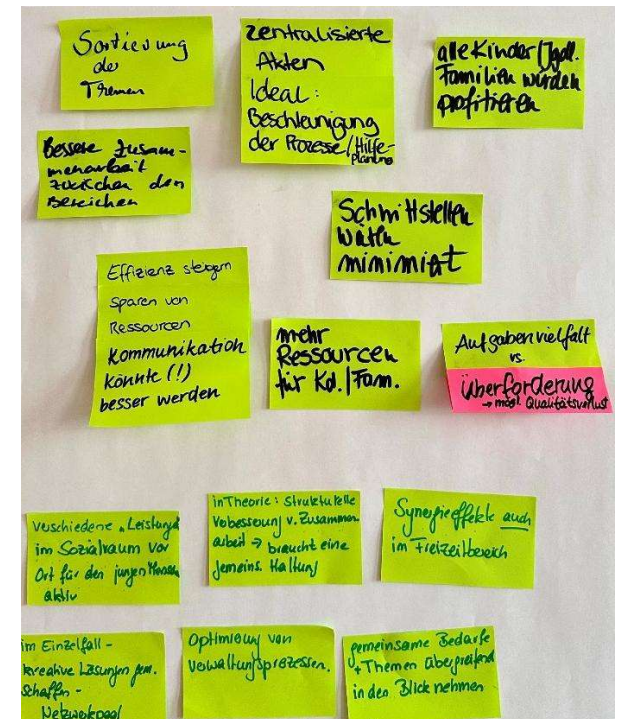 Sortierung
der
Themen
zentralisierte
Akten
Ideal:
Beschleunigung
der Prozesse/Hilfe-
planung
alle Kinder/Jgdl.
Familien würden
profitieren
Bessere Zusam-
menarbeit
zwischen den
Bereichen
Schnittstellen
wären
minimiert
Effizienz steigern
sparen von
Ressourcen
Kommunikation
könnte (!)
besser werden
mehr
Ressourcen
für Kd./Fam.
Aufgabenvielfalt
vs.
Überforderung
→ mögl. Qualitätsverlust
verschiedene "Leistungen
im Sozialraum vor
Ort für den jungen Menschen
aktiv
in Theorie: Strukturelle
Verbesserung v. Zusammen
arbeit → braucht eine
gemeins. Haltung
Synergieeffekte auch
im Freizeitbereich
im Einzelfall -
kreative Lösungen gem.
schaffen -
Netzwerkpool
Optimierung von
Verwaltungsprozessen.
gemeinsame Bedarfe
+ Themen übergreifend
in den Blick nehmen